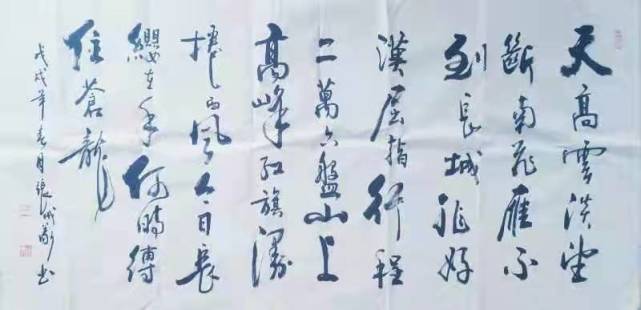 天高雲淡望
斷南飛雁不
到長城非好
漢屈指行程
二萬六盤山上
高峰紅旗漫
捲西風今日長
纓在手何時縛
住蒼龍
戊戌年春月書